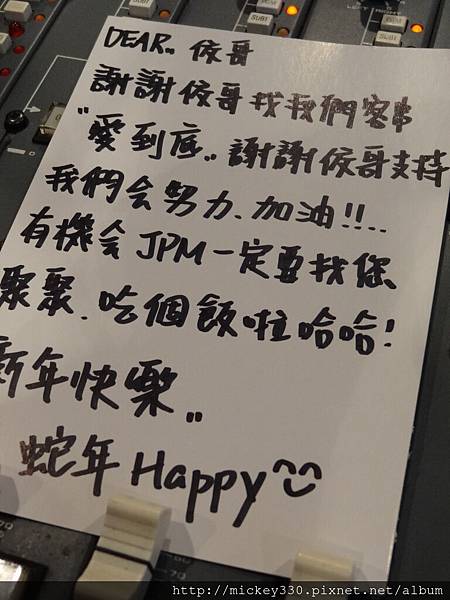 DEAR.. 佼哥
謝謝佼哥找我們客串
"愛到底„ 謝謝佼哥支持
我們会努力、加油!!...
有機会JPM一定要找您、
聚聚、吃個飯啦哈哈!
新年快樂„
蛇年Happy^^
http://mickey330.pixnet.net/album